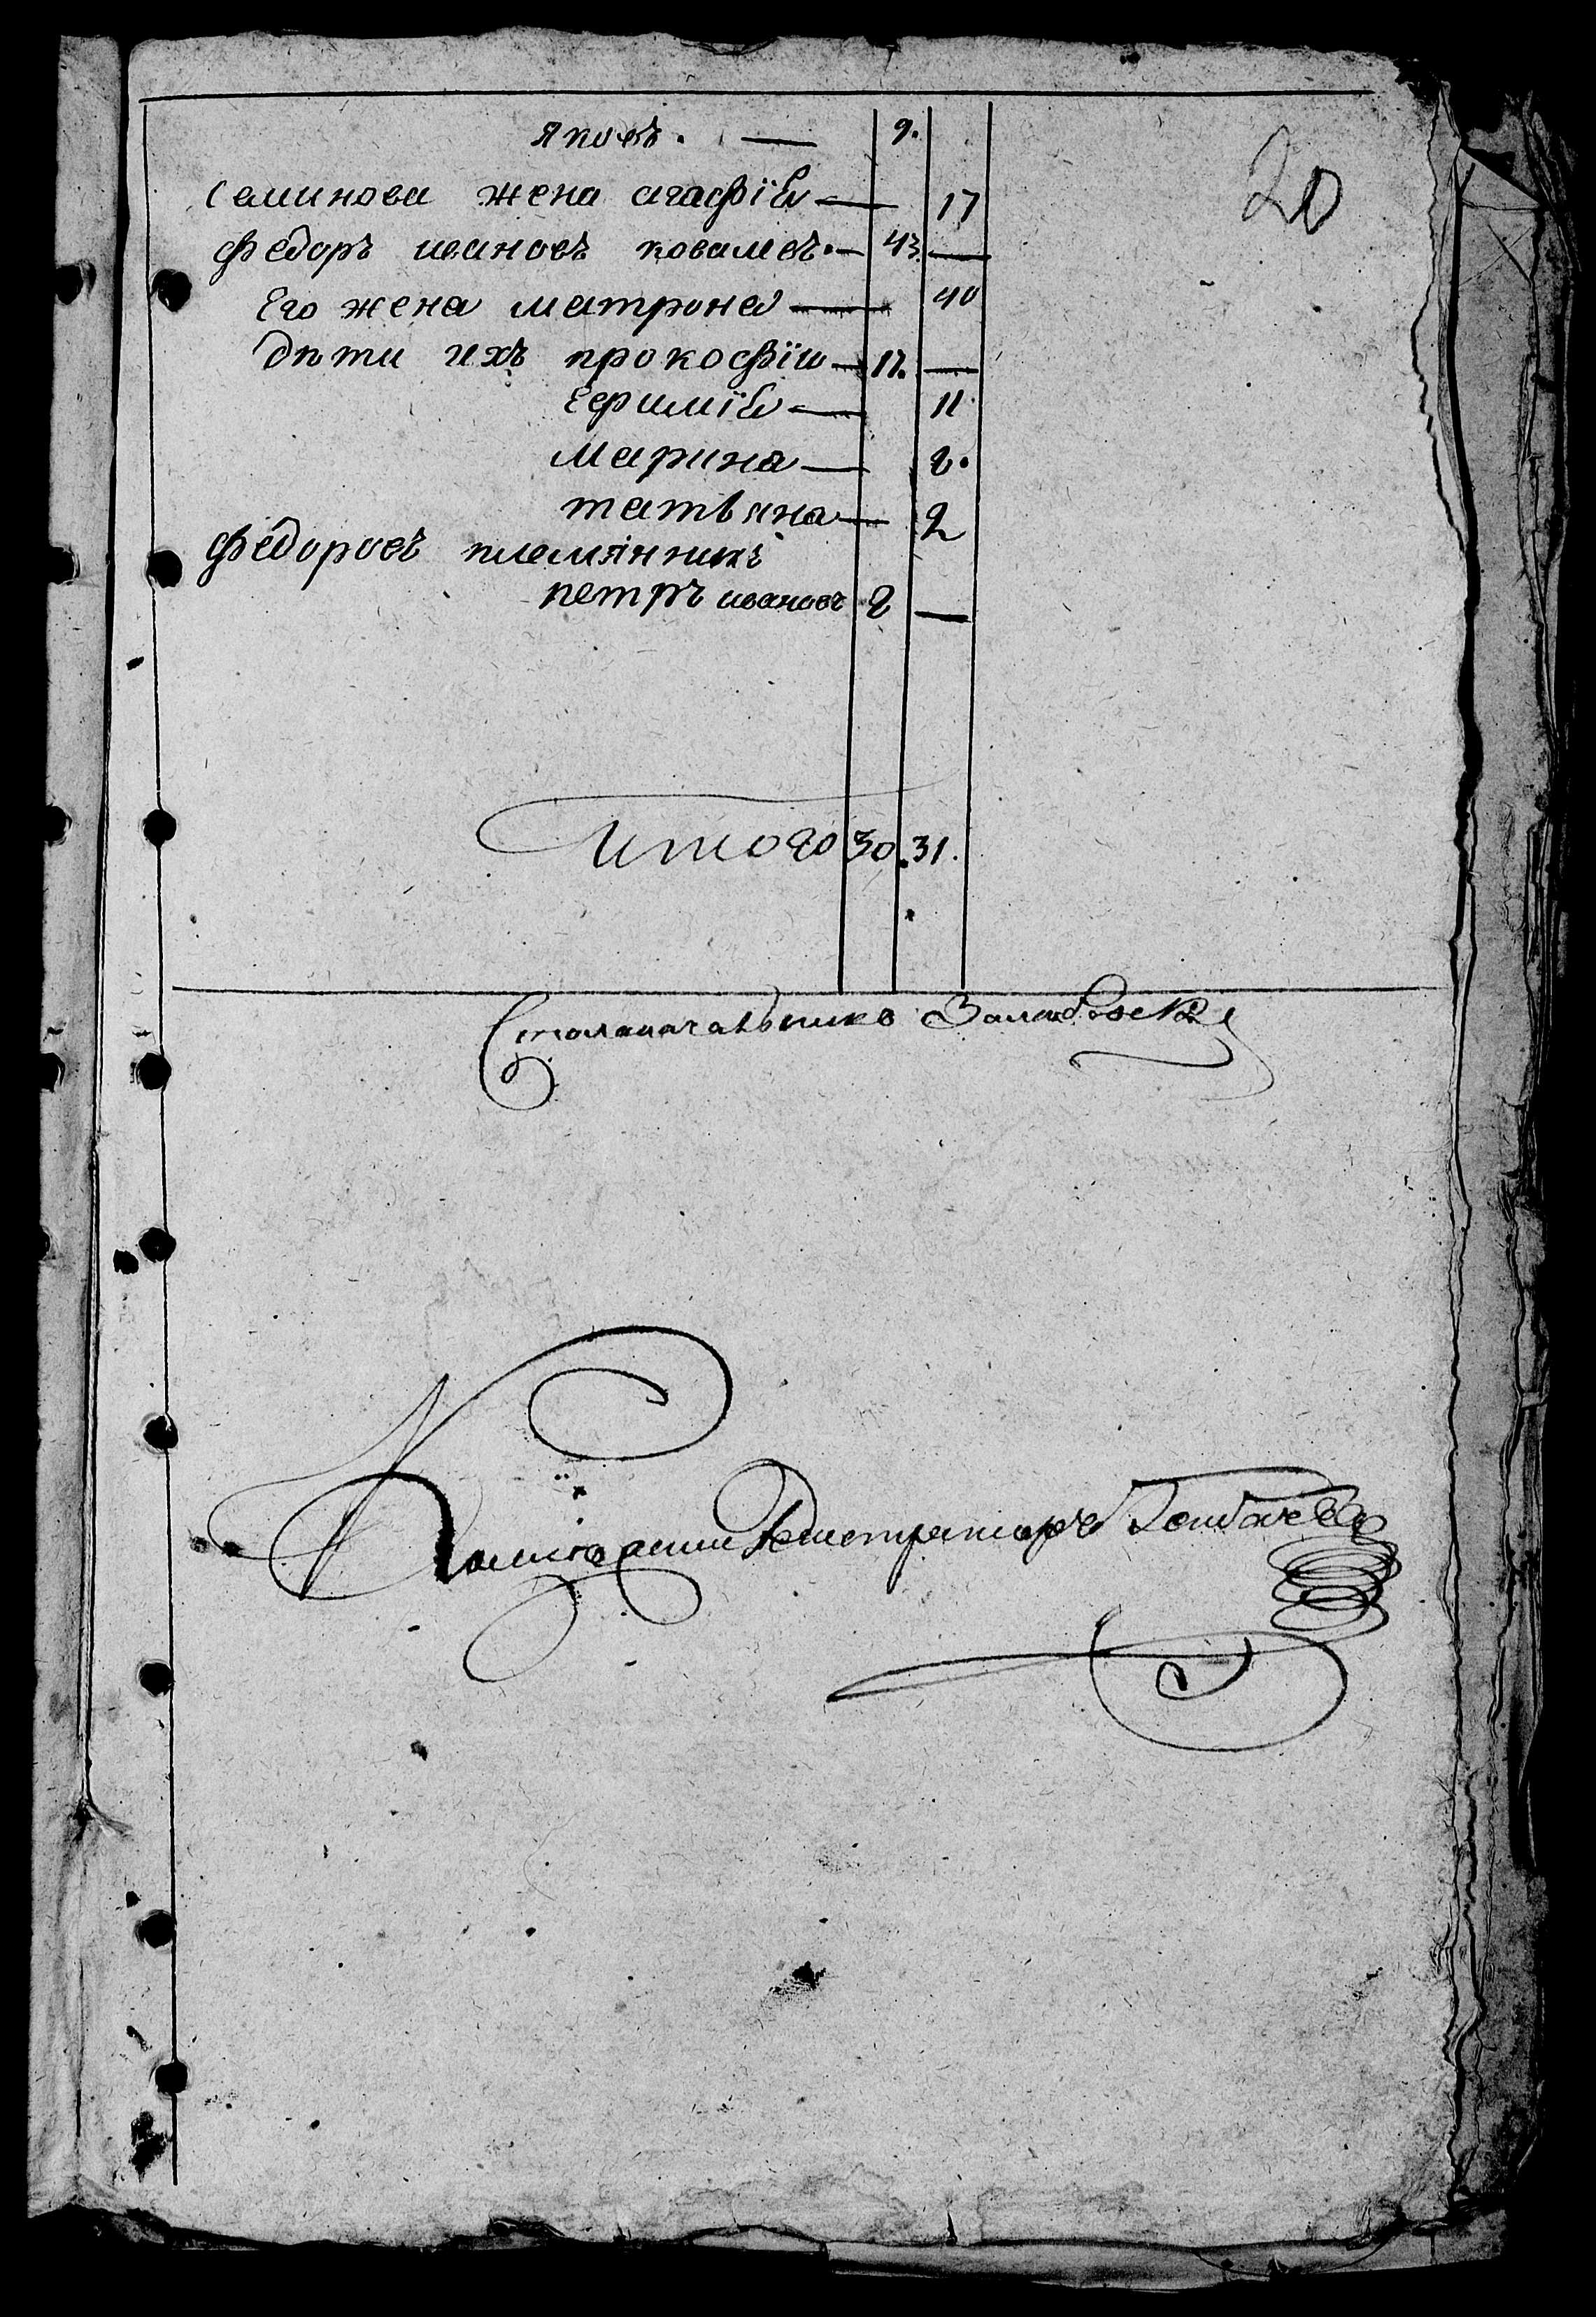 20
яковъ. — 9.
Семинова жена агафїя — 17
федоръ ивановъ ковалевъ. — 43. —
Его жена матрона — 40
дѣти ихъ прокофїи — 17. —
Ефимїя — 11
марина — 8.
татьяна — 2
федоровъ племянникъ
петръ ивановъ 8 —
Итого 30. 31.
Столаначальникъ
Регистраторъ